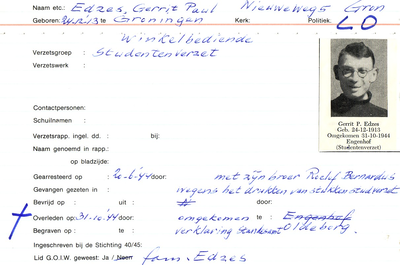 Naam etc.: Edzes, Gerrit Paul Nieuweweg 5 Gron
Geboren: 24-12-'13 te Groningen Kerk: Politiek: LO
Winkelbediende
Verzetsgroep : Studentenverzet
Verzetswerk :
Contactpersonen:
Schuilnamen :
Gerrit P. Edzes
Geb. 24-12-1913
Omgekomen 31-10-1944
Engenhof
(Studentenverzet)
Verzetsrapp. ingel. dd. : bij:
Naam genoemd in rapp.:
op bladzijde:
Gearresteerd op : 20-6-'44 door: met zijn broer Roelf Bernardus
Gevangen gezeten in : wegens het drukken van stukken studverzet
Bevrijd op : uit door:
Overleden op: 31-10-'44 door: omgekomen te Engenhof
Begraven op : te verklaring Oldeberg.
Ingeschreven bij de Stichting 40/45:
Lid G.O.I.W. geweest: Ja / Neen fam. Edzes